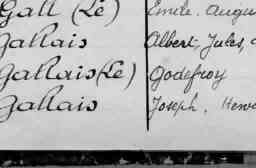 Gall (Le) Emile. Augu
Gallais Albert. Jules,
Gallais (Le) Godefroy
Gallais Joseph, Henri